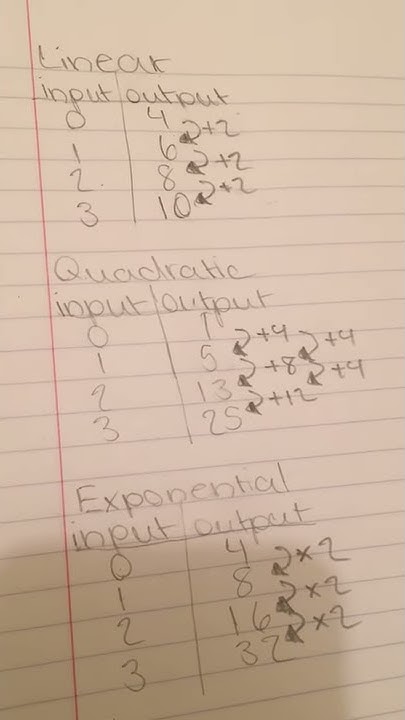 Linear
input output
0 4 +2
1 6 +2
2. 8 +2
3 10
Quadratic
input output
0 1 +4 +4
1 5 +8 +4
2 13 +12
3 25
Exponential
input output
0 4 ×2
1 8 ×2
2 16 ×2
3 32